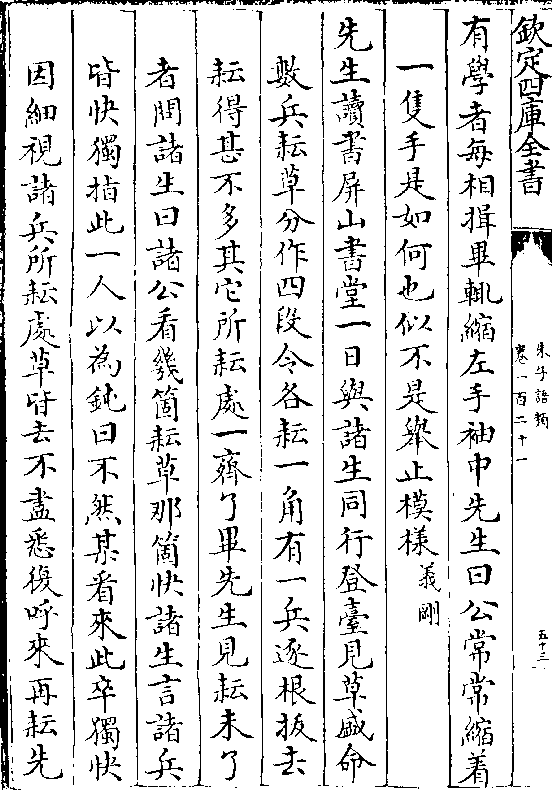 欽定四庫全書
朱子語類
卷一百二十一
五十三
有學者每相揖畢輒縮左手袖中先生曰公常常縮着
一隻手是如何也似不是舉止模樣義剛
先生讀書屏山書堂一日與諸生同行登臺見草盛命
數兵耘草分作四段令各耘一角有一兵逐根拔去
耘得甚不多其它所耘處一齊了畢先生見耘未了
者問諸生曰諸公看幾箇耘草那箇快諸生言諸兵
皆快獨指此一人以為鈍曰不然某看來此卒獨快
因細視諸兵所耘處草皆去不盡悉復呼來再耘先